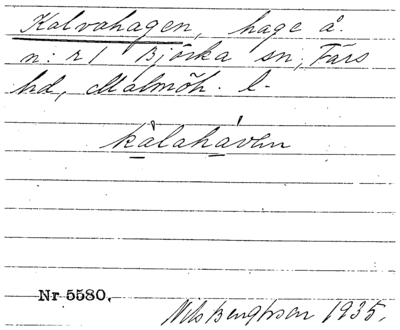 Kalvahagen, hage å.
n:r 1 Björka sn, Färs
hd, Malmöh. l.
kålahåven
Nr 5580.
Nils Bengtsson 1935.